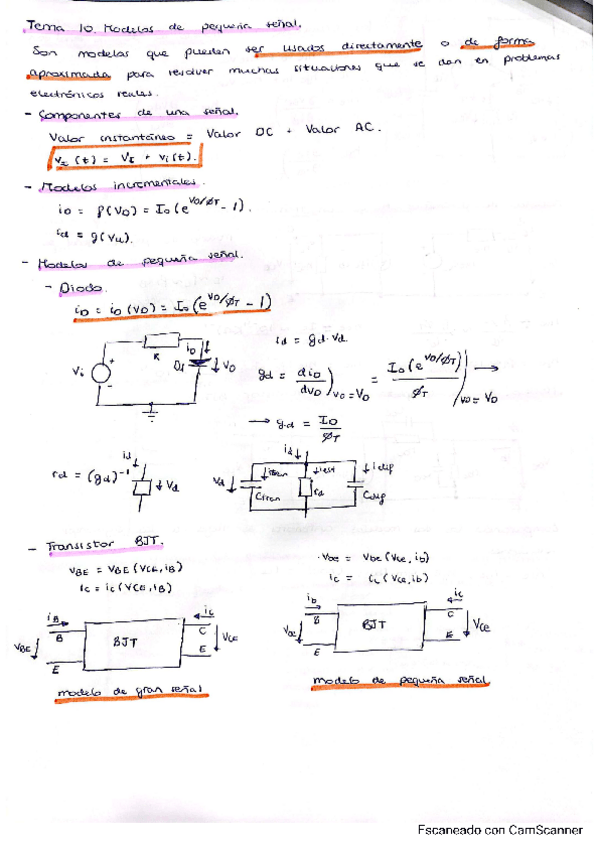 Tema 10. Modelos de pequeña señal.
Son modelos que pueden ser usados directamente o de forma
aproximada para resolver muchas situaciones que se dan en problemas
electrónicos reales.
- Componentes de una señal.
Valor instantáneo = Valor DC + Valor AC.
v_I(t) = V_I + v_i(t).
- Modelos incrementales.
i_D = f(V_D) = I_0 (e^{V_D/ϕ_T} - 1).
i_d = g(v_d).
- Modelos de pequeña señal.
- Diodo.
i_D = i_D(V_D) = I_0 (e^{V_D/ϕ_T} - 1)
V_i + - R i_D D_1 V_D
i_d = g_d · v_d
g_d = di_D/dv_D )_{v_D = V_D} = I_0 (e^{V_D/ϕ_T})/ϕ_T |_{v_D = V_D} →
→ g_d = I_D/ϕ_T
r_d = (g_d)^{-1} i_d V_d
i_d V_d i_tran C_tran i_est r_d i_dif C_dif
- Transistor BJT.
v_BE = v_BE (v_CE, i_B)
i_C = i_C (v_CE, i_B)
v_be = v_be (v_ce, i_b)
i_c = i_c (v_ce, i_b)
i_B B E v_BE BJT i_C C E v_CE
modelo de gran señal
i_b B E v_be BJT i_c C E v_ce
modelo de pequeña señal
Escaneado con CamScanner